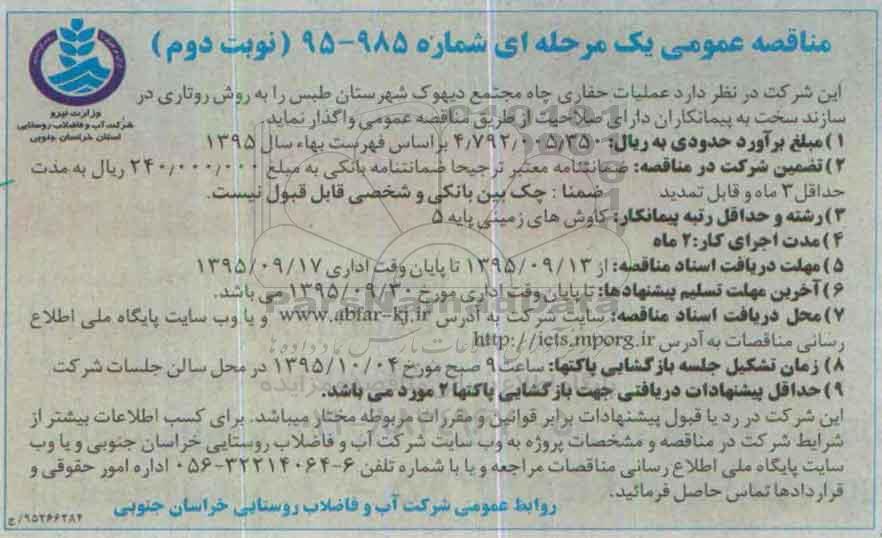 مناقصه عمومی یک مرحله ای شماره ۹۸۵-۹۵ (نوبت دوم)
وزارت نیرو
شرکت آب و فاضلاب روستایی
استان خراسان جنوبی
این شرکت در نظر دارد عملیات حفاری چاه مجتمع دیهوک شهرستان طبس را به روش روتاری در
سازند سخت به پیمانکاران دارای صلاحیت از طریق مناقصه عمومی واگذار نماید.
۱) مبلغ برآورد حدودی به ریال: ۴٫۷۹۲٫۰۰۵٫۳۵۰ بر اساس فهرست بهاء سال ۱۳۹۵
۲) تضمین شرکت در مناقصه: ضمانتنامه معتبر ترجیحا ضمانتنامه بانکی به مبلغ ۲۴۰٫۰۰۰٫۰۰۰ ریال به مدت
حداقل ۳ ماه و قابل تمدید ضمنا : چک بین بانکی و شخصی قابل قبول نیست.
۳) رشته و حداقل رتبه پیمانکار: کاوش های زمینی پایه ۵
۴) مدت اجرای کار: ۲ ماه
۵) مهلت دریافت اسناد مناقصه: از ۱۳۹۵/۰۹/۱۳ تا پایان وقت اداری ۱۳۹۵/۰۹/۱۷
۶) آخرین مهلت تسلیم پیشنهادها: تا پایان وقت اداری مورخ ۱۳۹۵/۰۹/۳۰ می باشد.
۷) محل دریافت اسناد مناقصه: سایت شرکت به آدرس www.abfar-kj.ir و یا وب سایت پایگاه ملی اطلاع
رسانی مناقصات به آدرس http://iets.mporg.ir
۸) زمان تشکیل جلسه بازگشایی پاکتها: ساعت ۹ صبح مورخ ۱۳۹۵/۱۰/۰۴ در محل سالن جلسات شرکت
۹) حداقل پیشنهادات دریافتی جهت بازگشایی پاکتها ۲ مورد می باشد.
این شرکت در رد یا قبول پیشنهادات برابر قوانین و مقررات مربوطه مختار میباشد. برای کسب اطلاعات بیشتر از
شرایط شرکت در مناقصه و مشخصات پروژه به وب سایت شرکت آب و فاضلاب روستایی خراسان جنوبی و یا وب
سایت پایگاه ملی اطلاع رسانی مناقصات مراجعه و یا با شماره تلفن ۶-۳۲۲۱۴۰۶۴-۰۵۶ اداره امور حقوقی و
قراردادها تماس حاصل فرمائید.
روابط عمومی شرکت آب و فاضلاب روستایی خراسان جنوبی
۹۵۲۶۶۲۸۴/خ